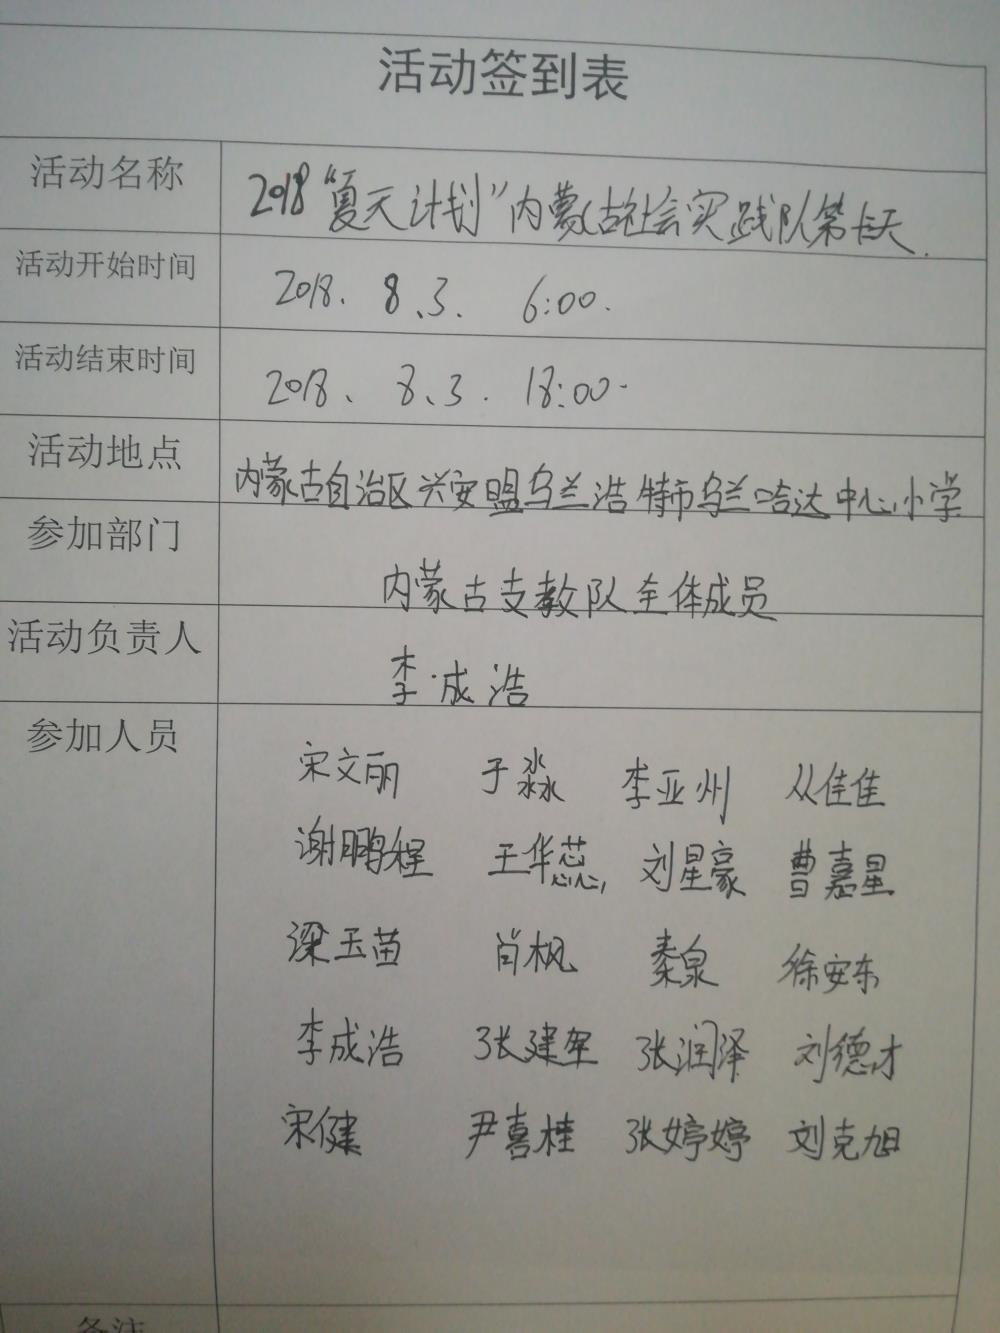 活动签到表
活动名称 2018“夏天计划”内蒙古社会实践队第七天.
活动开始时间 2018. 8.3. 6:00.
活动结束时间 2018、8、3. 18:00.
活动地点 内蒙古自治区兴安盟乌兰浩特市乌兰哈达中心小学
参加部门 内蒙古支教队全体成员
活动负责人 李成浩
参加人员 宋文丽 于淼 李亚州 从佳佳
谢鹏程 王华蕊 刘星豪 曹嘉星
梁玉苗 肖枫 秦泉 徐安东
李成浩 张建军 张润泽 刘德才
宋健 尹喜桂 张婷婷 刘克旭
备注